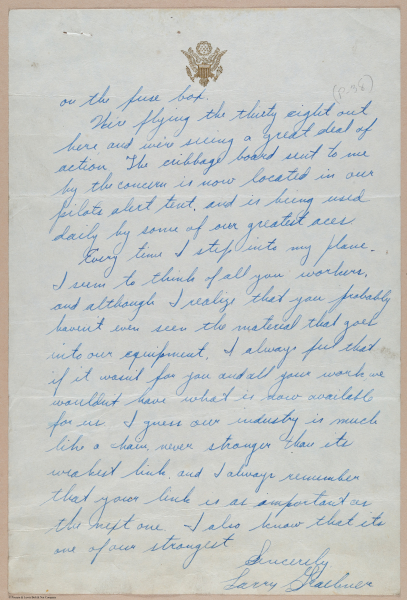 on the fuse box.
(P-38)
We're flying the thirty eight out
here and we're seeing a great deal of
action. The cribbage board sent to me
by the concern is now located in our
pilots alert tent, and is being used
daily by some of our greatest aces.
Every time I step into my plane,
I seem to think of all you workers,
and although I realize that you probably
haven't even seen the material that goes
into our equipment, I always feel that
if it wasn't for you and all your work we
wouldn't have what is now available
for us. I guess our industry is much
like a chain, never stronger than its
weakest link, and I always remember
that your link is as important as
the next one. I also know that its
one of our strongest
Sincerely
Larry